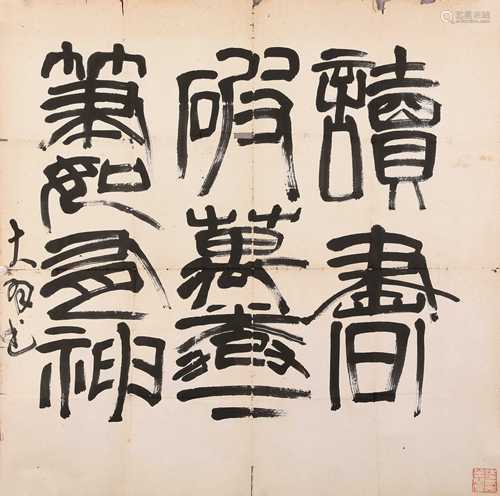 讀書
破萬卷下
筆如有神
大羽书